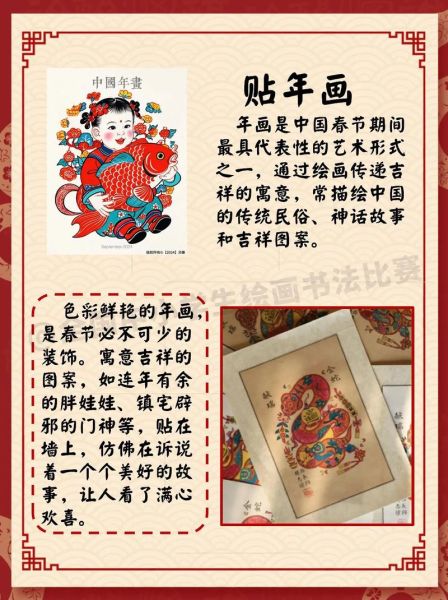 中國年畫
September 2024
贴年画
年画是中国春节期间
最具代表性的艺术形式
之一，通过绘画传递吉
祥的寓意，常描绘中国
的传统民俗、神话故事
和吉祥图案。
生绘画书法比赛
色彩鲜艳的年画，
是春节必不可少的
装饰。寓意吉祥的
图案，如连年有余
的胖娃娃、镇宅辟
邪的门神等，贴在
墙上，仿佛在诉说
着一个个美好的故
事，让人看了满心
欢喜。
金蛇
献瑞